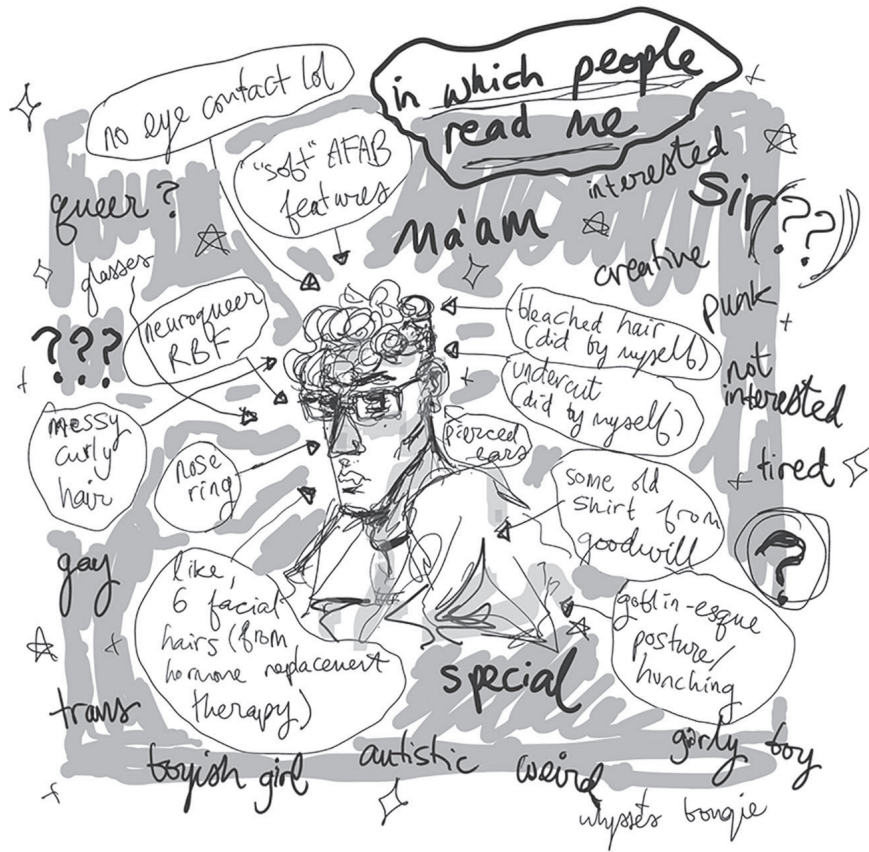 in which people
read me
no eye contact lol
"soft" AFAB
features
interested
Sir??
queer?
Ma'am
creative
glasses
punk
neuroqueer
RBF
bleached hair
(did by myself)
???
undercut
(did by myself)
not
interested
messy
curly
hair
pierced
ears
nose
ring
tired
some old
shirt from
goodwill
?
gay
like,
6 facial
hairs (from
hormone replacement
therapy)
goblin-esque
posture/
hunching
special
trans
boyish girl
autistic
weird
girly boy
ulysses bougie